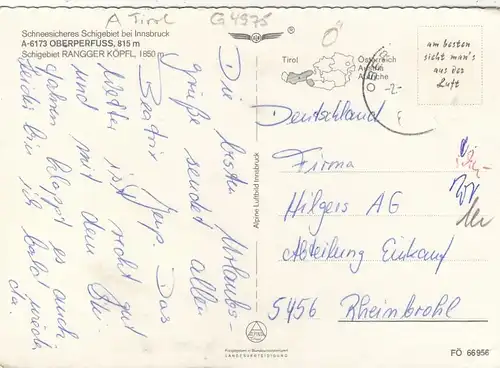 A Tirol
G 4975
Schneesicheres Schigebiet bei Innsbruck
A-6173 OBERPERFUSS, 815 m
Schigebiet RANGGER KÖPFL, 1850 m
Die besten Urlaubs-
grüße sendet allen
Beatrix Jenp. Das
Wetter ist recht gut
und mit dem Ski-
fahren klappt es auch
leider bin ich bald wieder
da.
Alpine Luftbild Innsbruck
Tirol
Österreich
Austria
Autriche
am besten
sieht man's
aus der
Luft
Deutschland
Firma
Hilgers AG
Abteilung Einkauf
5456 Rheinbrohl
ALPINE
LANDESVERTEIDIGUNG
FÖ 66956